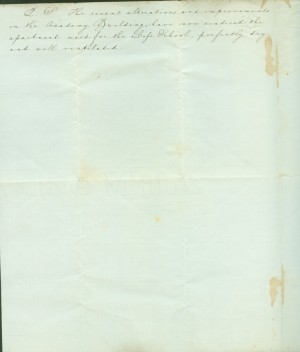 P. S. The recent alterations and improvements
in the Academy Building, have now rendered the
apartment used for the Life School, perfectly dry
and well ventilated.